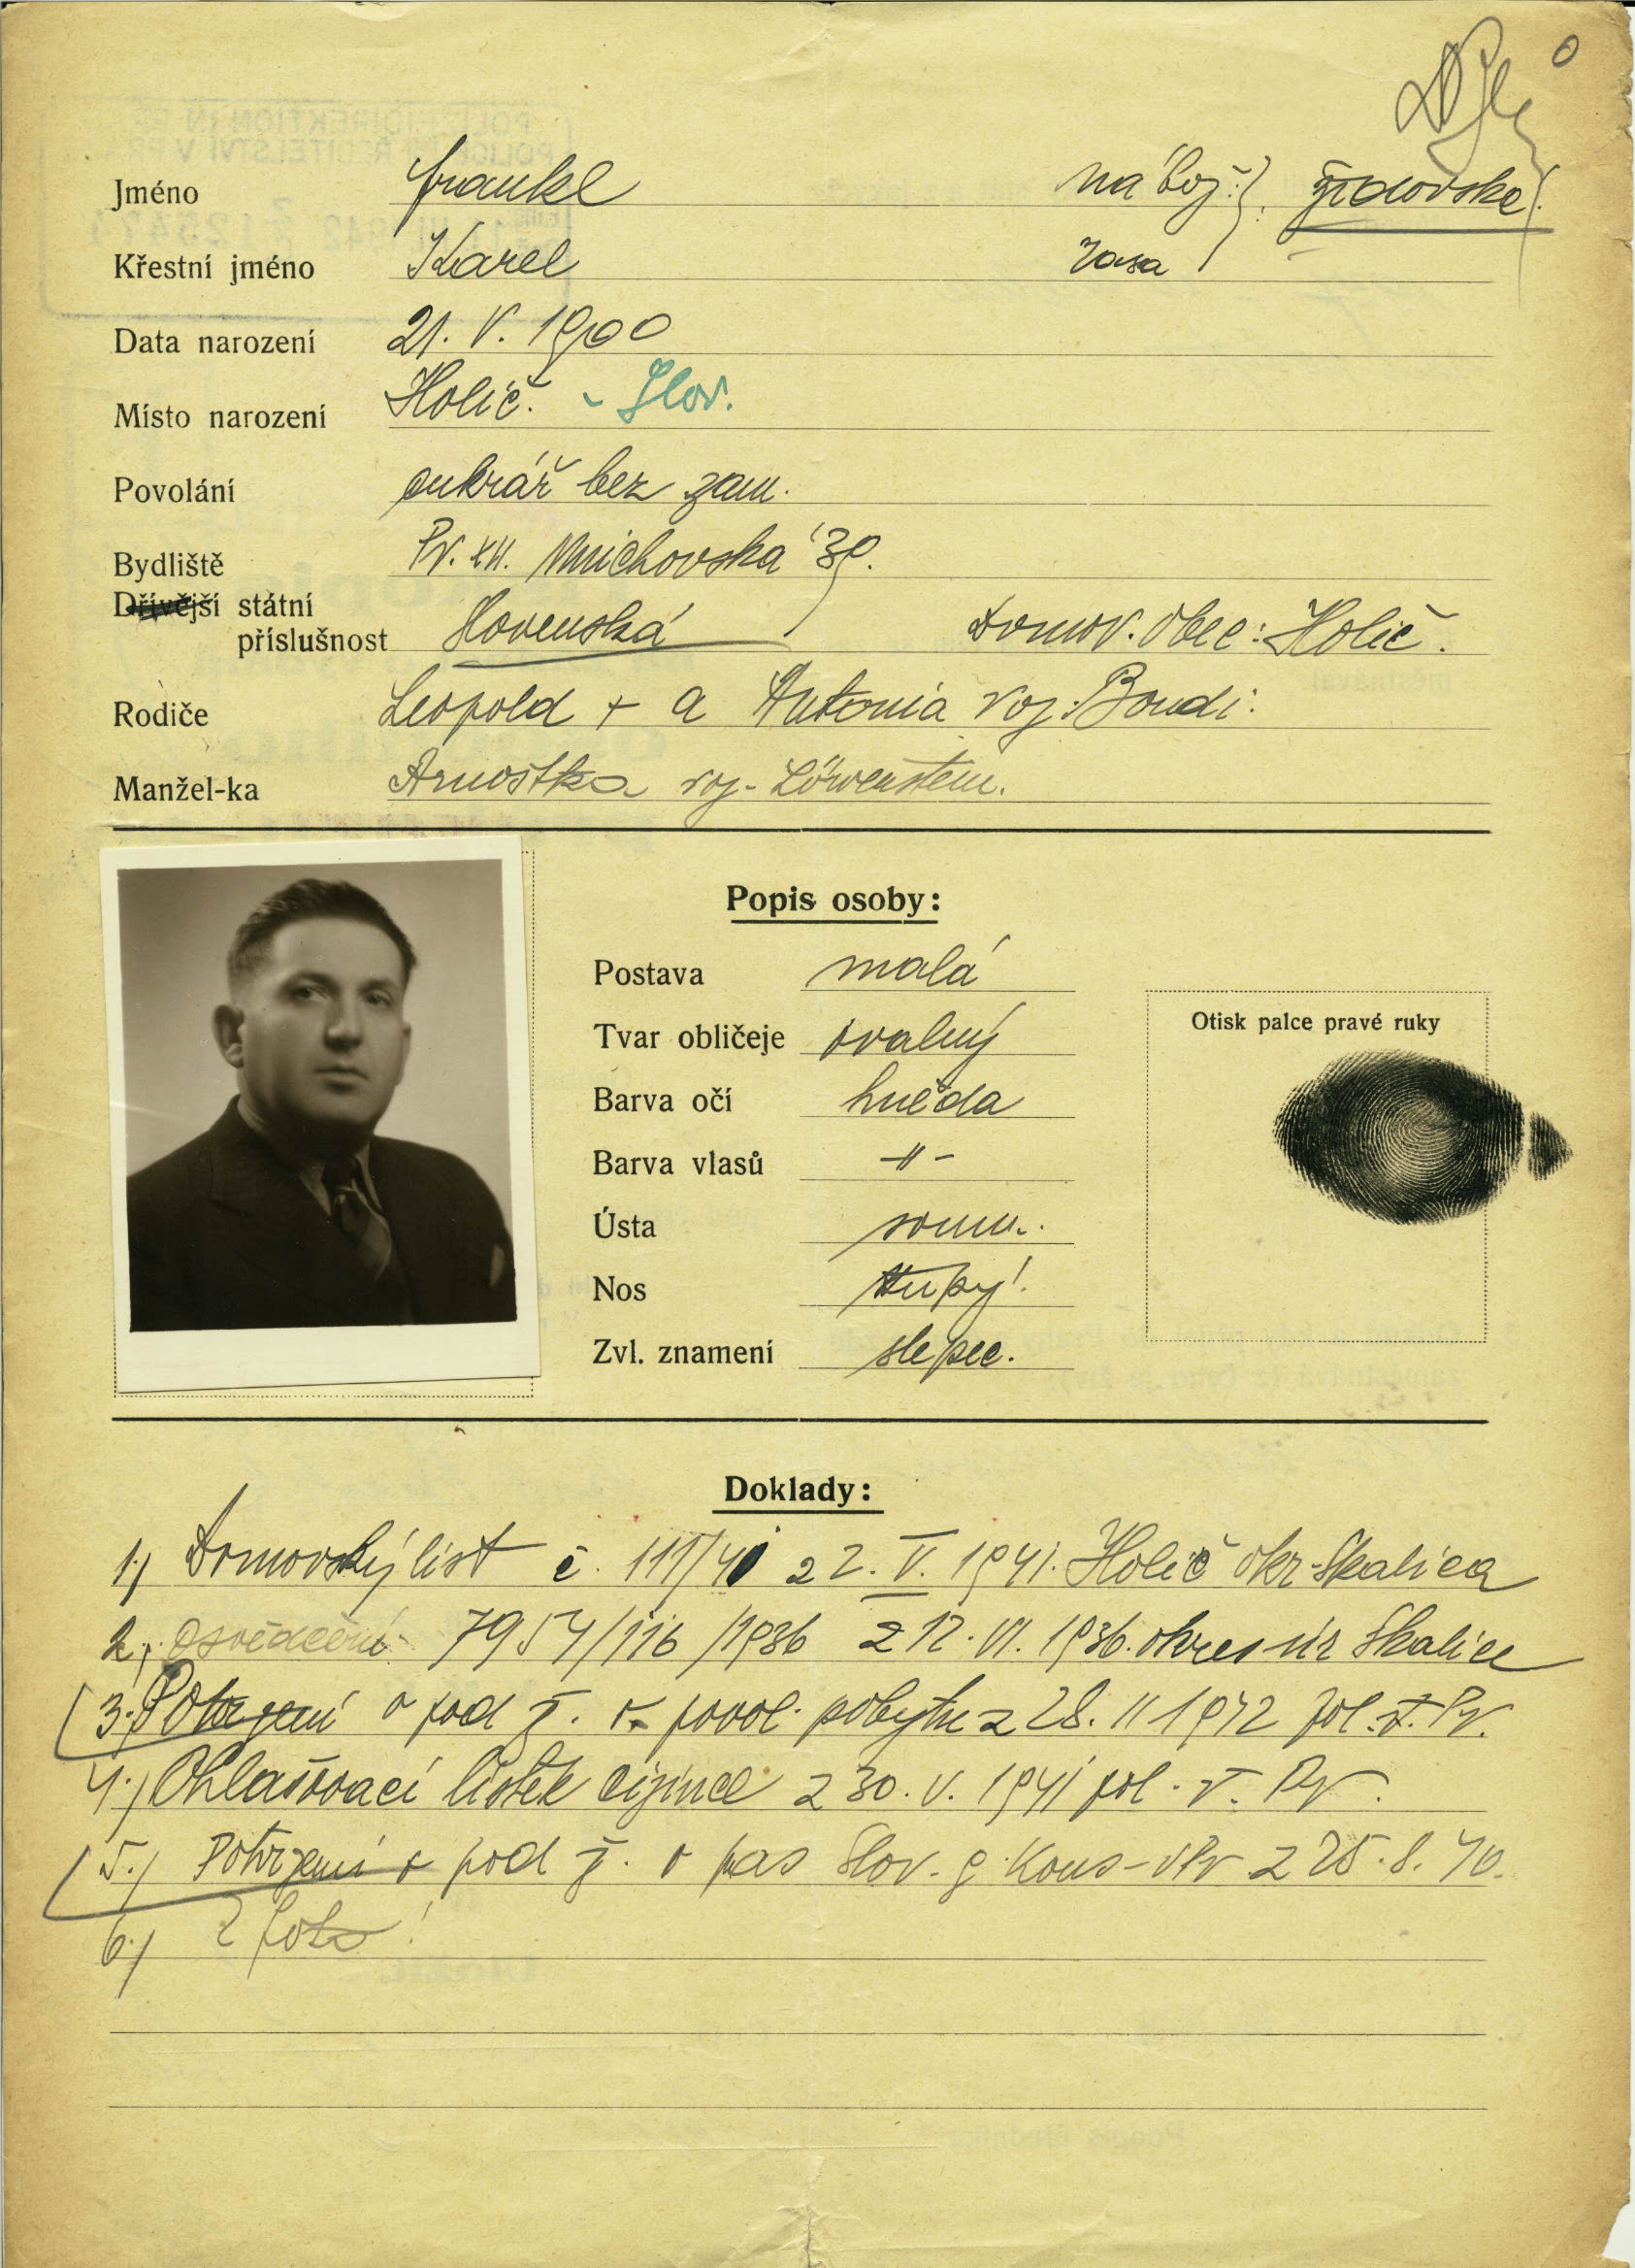 Jméno Frankl nábož. židovské.
Křestní jméno Karel rasa
Data narození 21. V. 1900
Místo narození Holič. - Slov.
Povolání cukrář bez zam.
Bydliště Pr. XII. Mnichovska 39.
Dřívější státní
příslušnost Slovenská Domov. obec: Holič.
Rodiče Leopold + a Antonia roz. Bondi.
Manžel-ka Arnoštka roz. Löwenstein.
Popis osoby:
Postava malá
Tvar obličeje oválný
Barva očí hněda
Barva vlasů -||-
Ústa soum.
Nos tupý.
Zvl. znamení slepec.
Otisk palce pravé ruky
Doklady:
1.) Domovský list č. 111/40 z 2. V. 1941. Holič okr. Skalica
2.) Osvědčení 7954/116/1936 z 12. VI. 1936. okres. úř Skalice
3.) Potvrzení o pod ž. o povol. pobytu z 28. II 1942 pol. ř. Pr.
4.) Ohlašovací lístek cizince z 30. V. 1941 pol. ř. Pr.
5.) Potvrzení o pod ž. o pas Slov. g. Kons-v Pr. z 25. 8. 40.
6.) 2 foto!